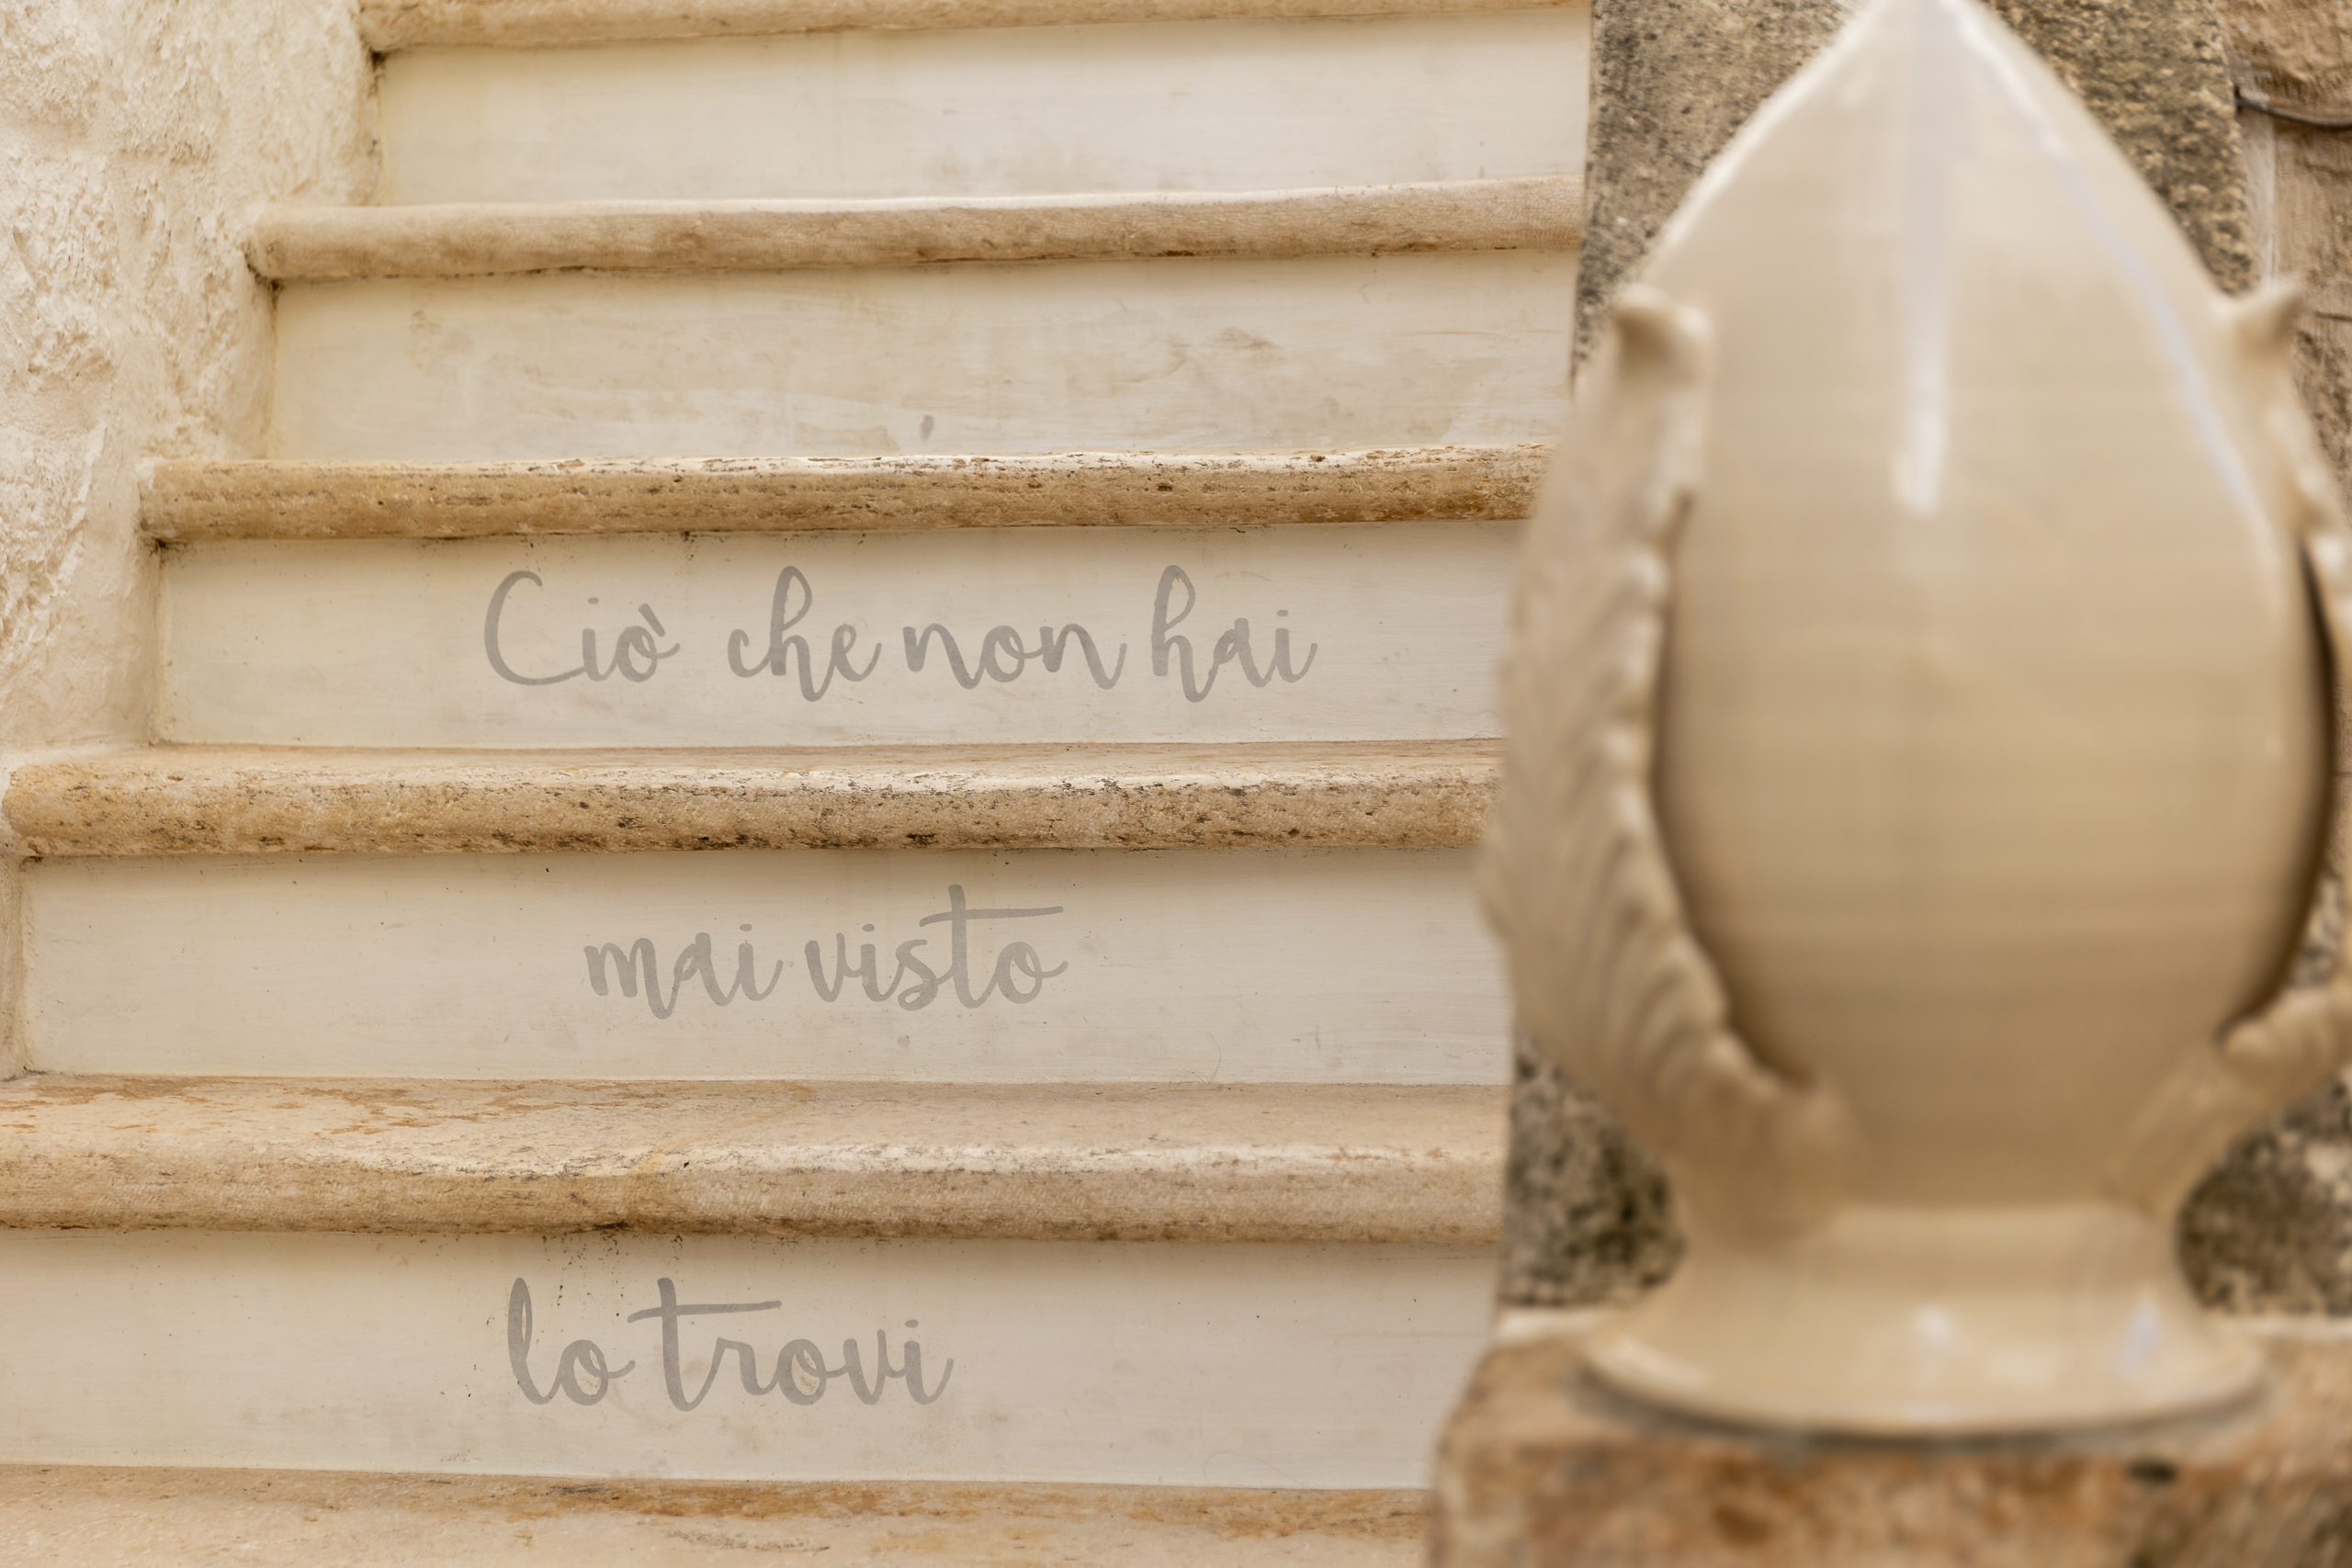 Ciò che non hai
mai visto
lo trovi